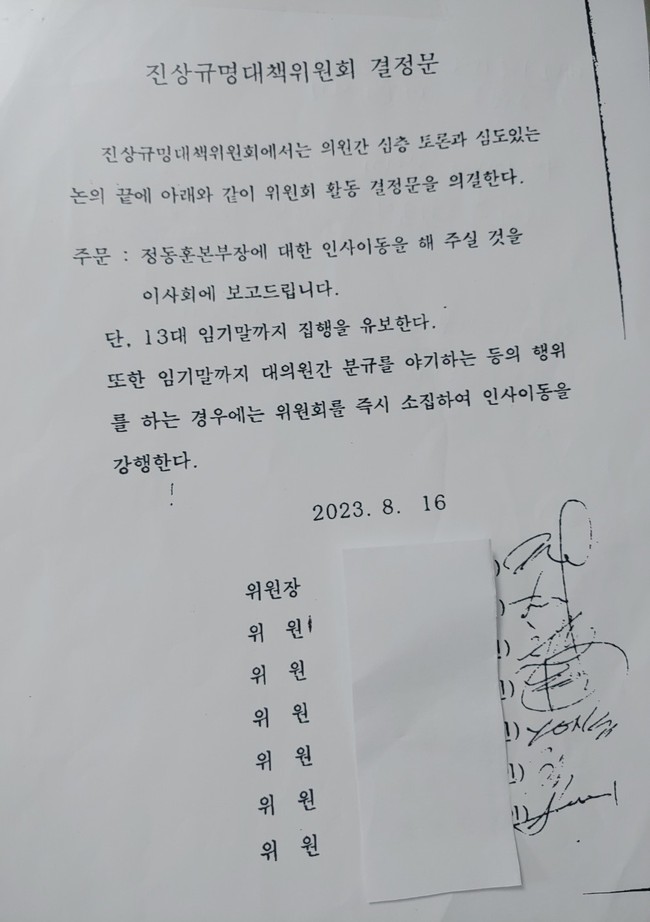 진상규명대책위원회 결정문
진상규명대책위원회에서는 의원간 심층 토론과 심도있는
논의 끝에 아래와 같이 위원회 활동 결정문을 의결한다.
주문 : 정동훈본부장에 대한 인사이동을 해 주실 것을
이사회에 보고드립니다.
단, 13대 임기말까지 집행을 유보한다.
또한 임기말까지 대의원간 분규를 야기하는 등의 행위
를 하는 경우에는 위원회를 즉시 소집하여 인사이동을
강행한다.
2023. 8. 16
위원장
위 원
위 원
위 원
위 원
위 원
위 원